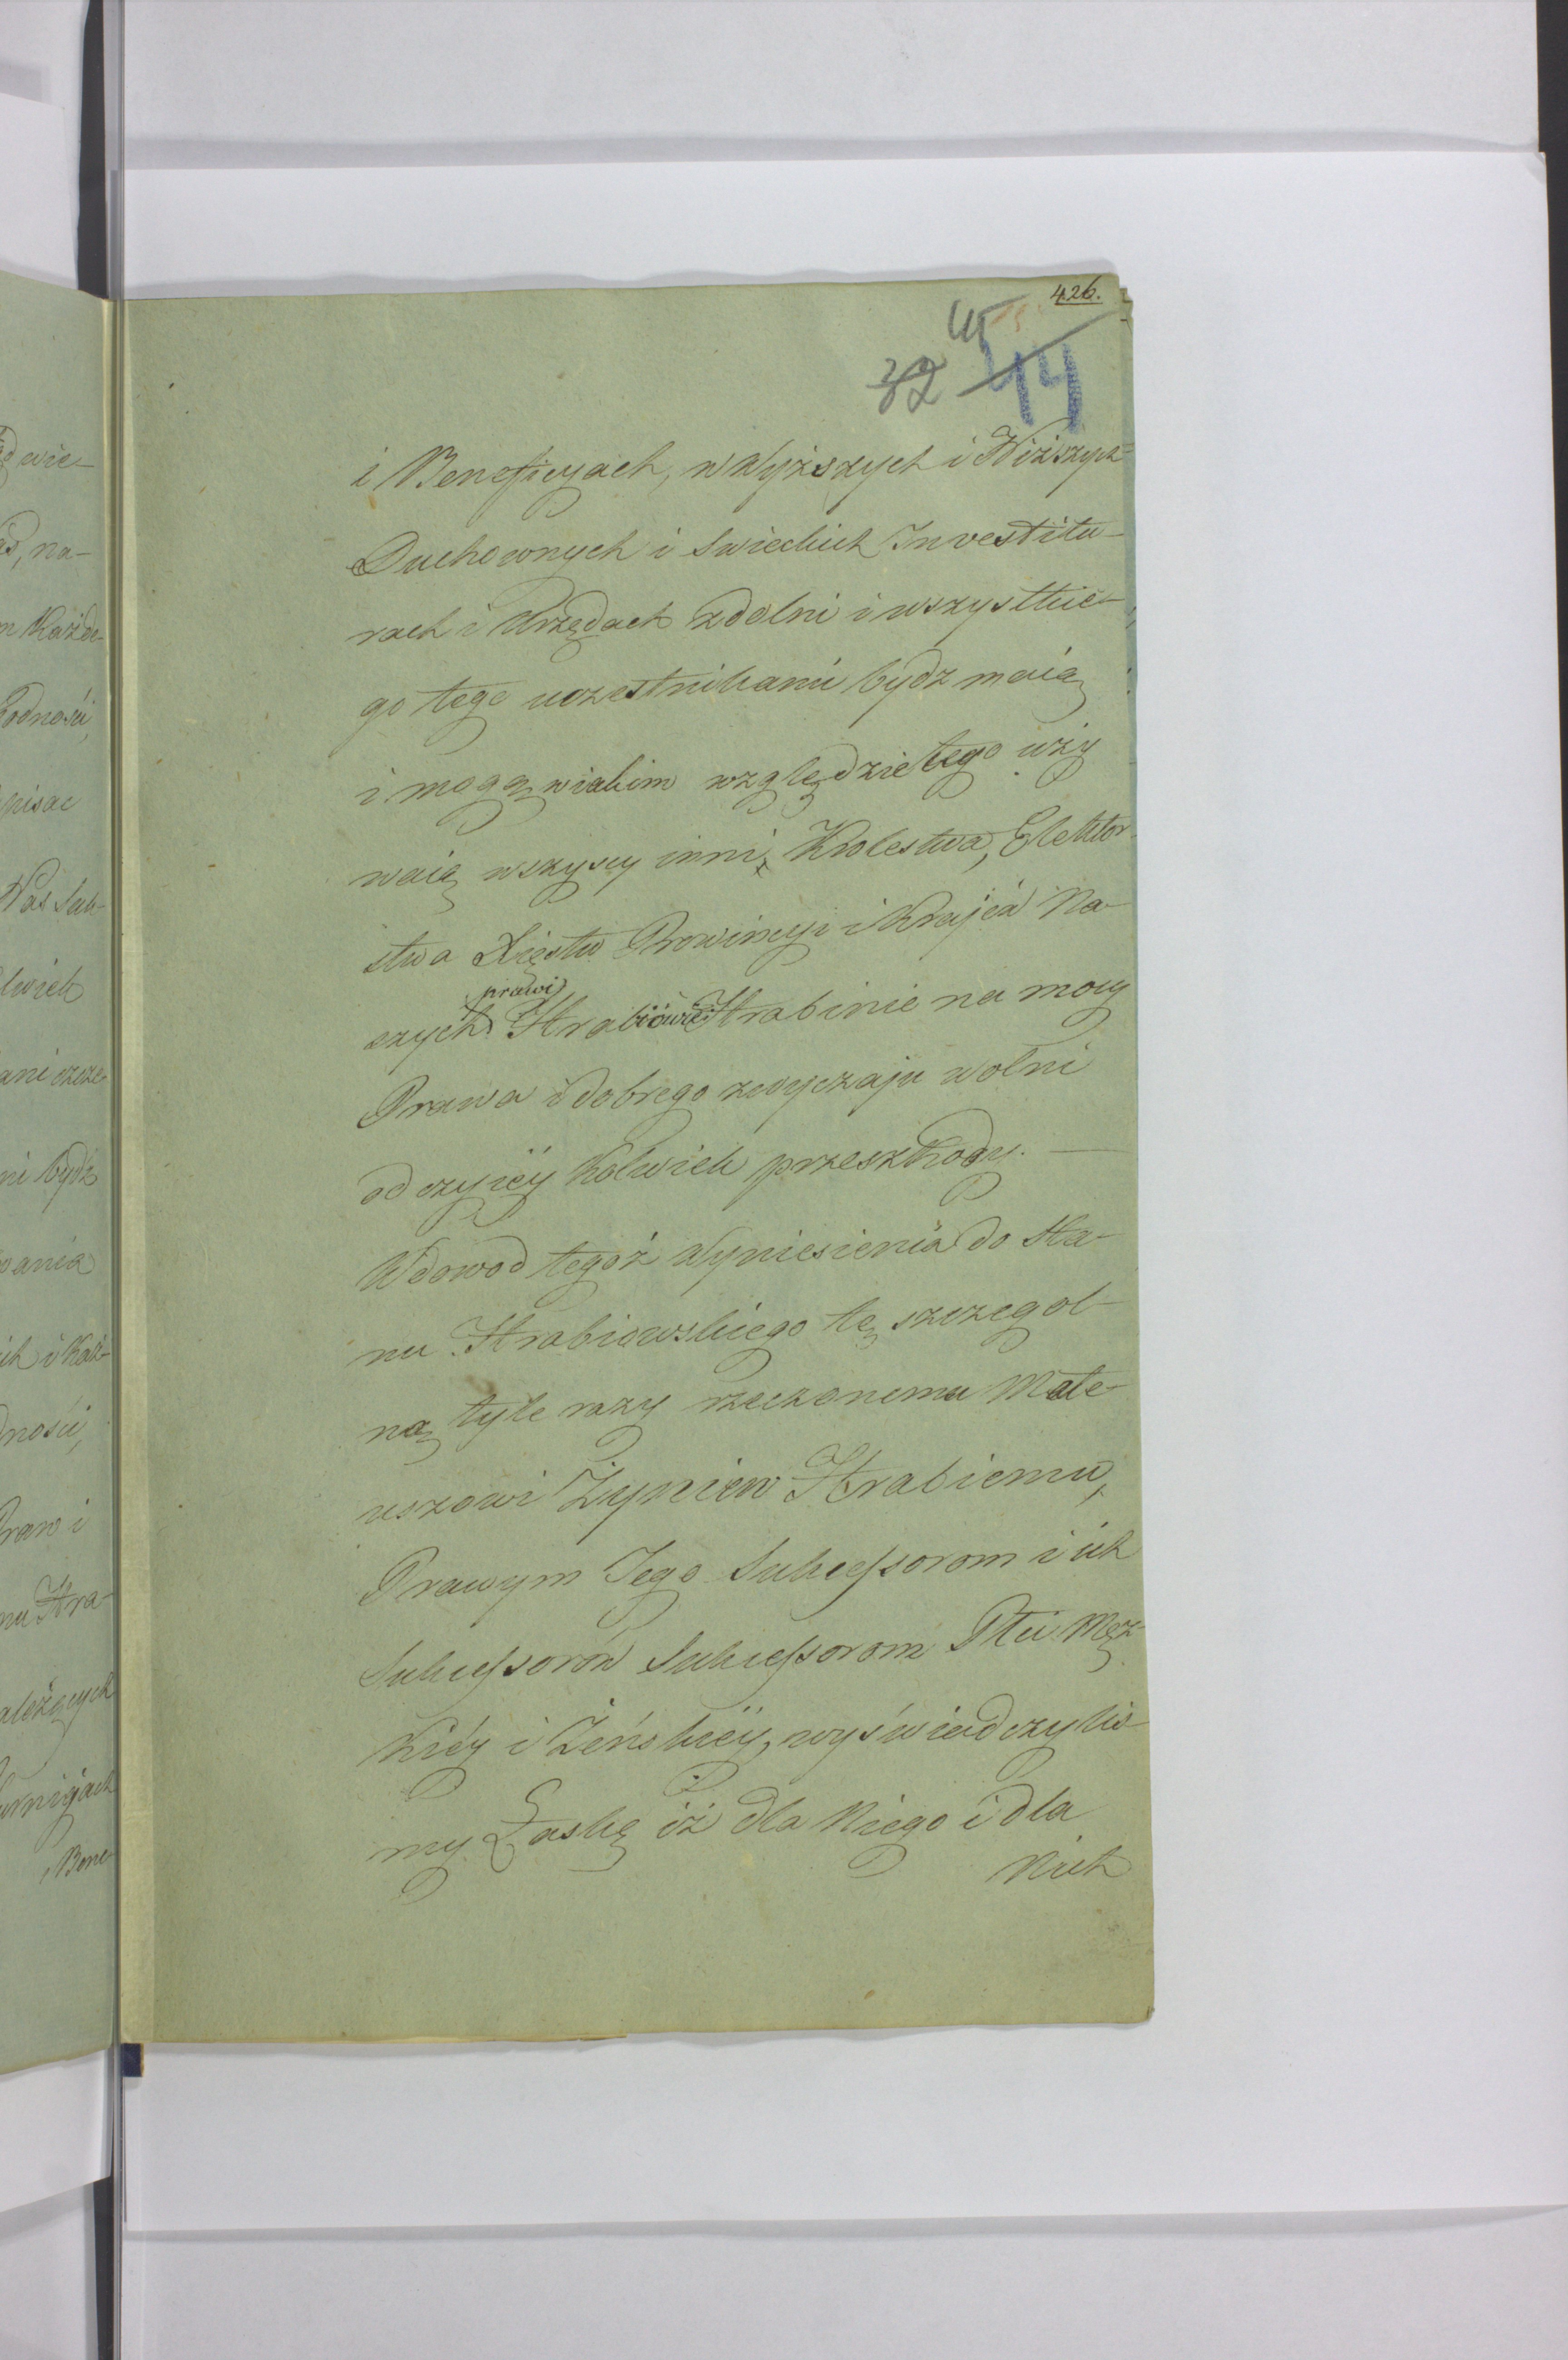 426.
32 44
i Beneficyach, w Wyższych i Niższych
Duchownych i Swieckich Investitu-
rach i Urzędach zdolni i wszystkie-
go tego uczestnikami bydz maią
i mogą wiakim względzie tego uży
waią wszyscy inni Krolestwa, Elektor-
stwa Xięstw Prowincyi i Kraiów Na-
szych prawi Hrabiowie i Hrabinie na mocy
Prawa i dobrego zwyczaju wolni
od czyiey kolwiek przeszkody. —
W dowod tegoż Wyniesienia do Sta-
nu Hrabiowskiego tę szczegol-
ną tyle razy rzeczonemu Mate-
uszowi Żyniew Hrabiemu,
Prawym Jego Sukcessorom i ich
Sukcessorów Sukcessorom Płci Męz-
kiéy i Żeńskiéy, wyświadczyliś-
my Łaskę iż dla Niego i dla
Nich
ad wie-
na-
m Każde-
Godności,
pisac
Nas Suk-
ani szcze-
ni bydź
wania
ich i Każ-
dności,
Praw i
nu Hra-
ależących
Bene-